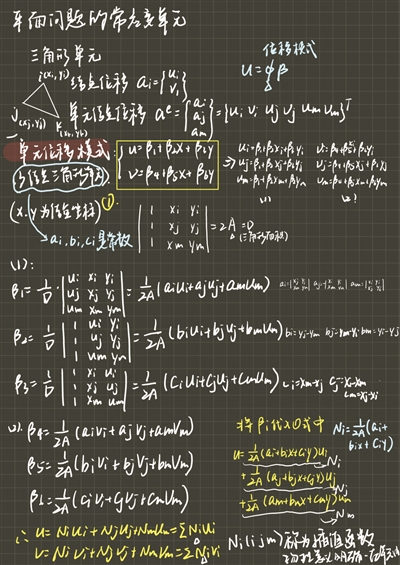 平面问题的常应变单元
三角形单元
位移模式
u = ϕβ
i(xi,yi)
结点位移 ai = {ui vi}
j(xj,yj)
单元结点位移 aᵉ = {ai aj am} = {ui vi uj vj um vm}ᵀ
单元位移模式
(3结点三角形单元)
{ u = β1+β2x+β3y
v = β4+β5x+β6y
⇒ ui = β1+β2xi+β3yi vi = β4+β5xi+β6yi
uj = β1+β2xj+β3yj vj = β4+β5xj+β6yj
um = β1+β2xm+β3ym vm = β4+β5xm+β6ym
(1) (2)
(x,y为结点坐标) ①
ai,bi,ci是常数
| 1 xi yi
1 xj yj
1 xm ym | = 2A = D
(三角形面积)
(1):
β1 = 1/D · | ui xi yi
uj xj yj
um xm ym | = 1/2A (aiui+ajuj+amum)
β2 = 1/D | 1 ui yi
1 uj yj
1 um ym | = 1/2A (biui+bjuj+bmum) bi=yj-ym bj=ym-yi bm=yi-yj
β3 = 1/D | 1 xi ui
1 xj uj
1 xm um | = 1/2A (ciui+cjuj+cmum) ci=xm-xj cj=xi-xm
cm=xj-xi
(2). β4 = 1/2A (aivi+ajvj+amvm)
β5 = 1/2A (bivi+bjvj+bmvm)
β6 = 1/2A (civi+cjvj+cmvm)
将βi代入①式中
Ni = 1/2A (ai+bix+ciy)
u = 1/2A (ai+bix+ciy)ui
Ni
+ 1/2A (aj+bjx+cjy)uj
Nj
+ 1/2A (am+bmx+cmy)um
Nm
∴ u = Niui+Njuj+Nmum = ΣNiui
v = Nivi+Njvj+Nmvm = ΣNivi
Ni(i j m)称为插值函数